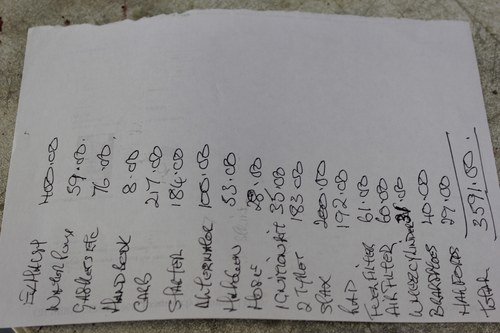 EXHAUST 400.00
WATER PUMP 59.00
GASKETS ETC 76.00
HANDBOOK 8.00
CARB 217.00
STARTER 184.00
ALTERNATOR 100.00
53.00
HOSE 28.00
IGNITION KIT 35.00
2 TYRES 183.00
SPAX 200.00
RAD 192.00
FUEL FILTER 61.00
AIR FILTER 60.00
WHEEL CYLINDER
BRAKE SHOES 40.00
HALFORDS 29.00
TOTAL 3591.00